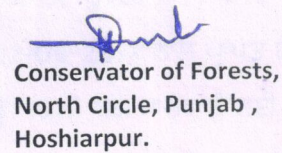 Conservator of Forests,
North Circle, Punjab ,
Hoshiarpur.